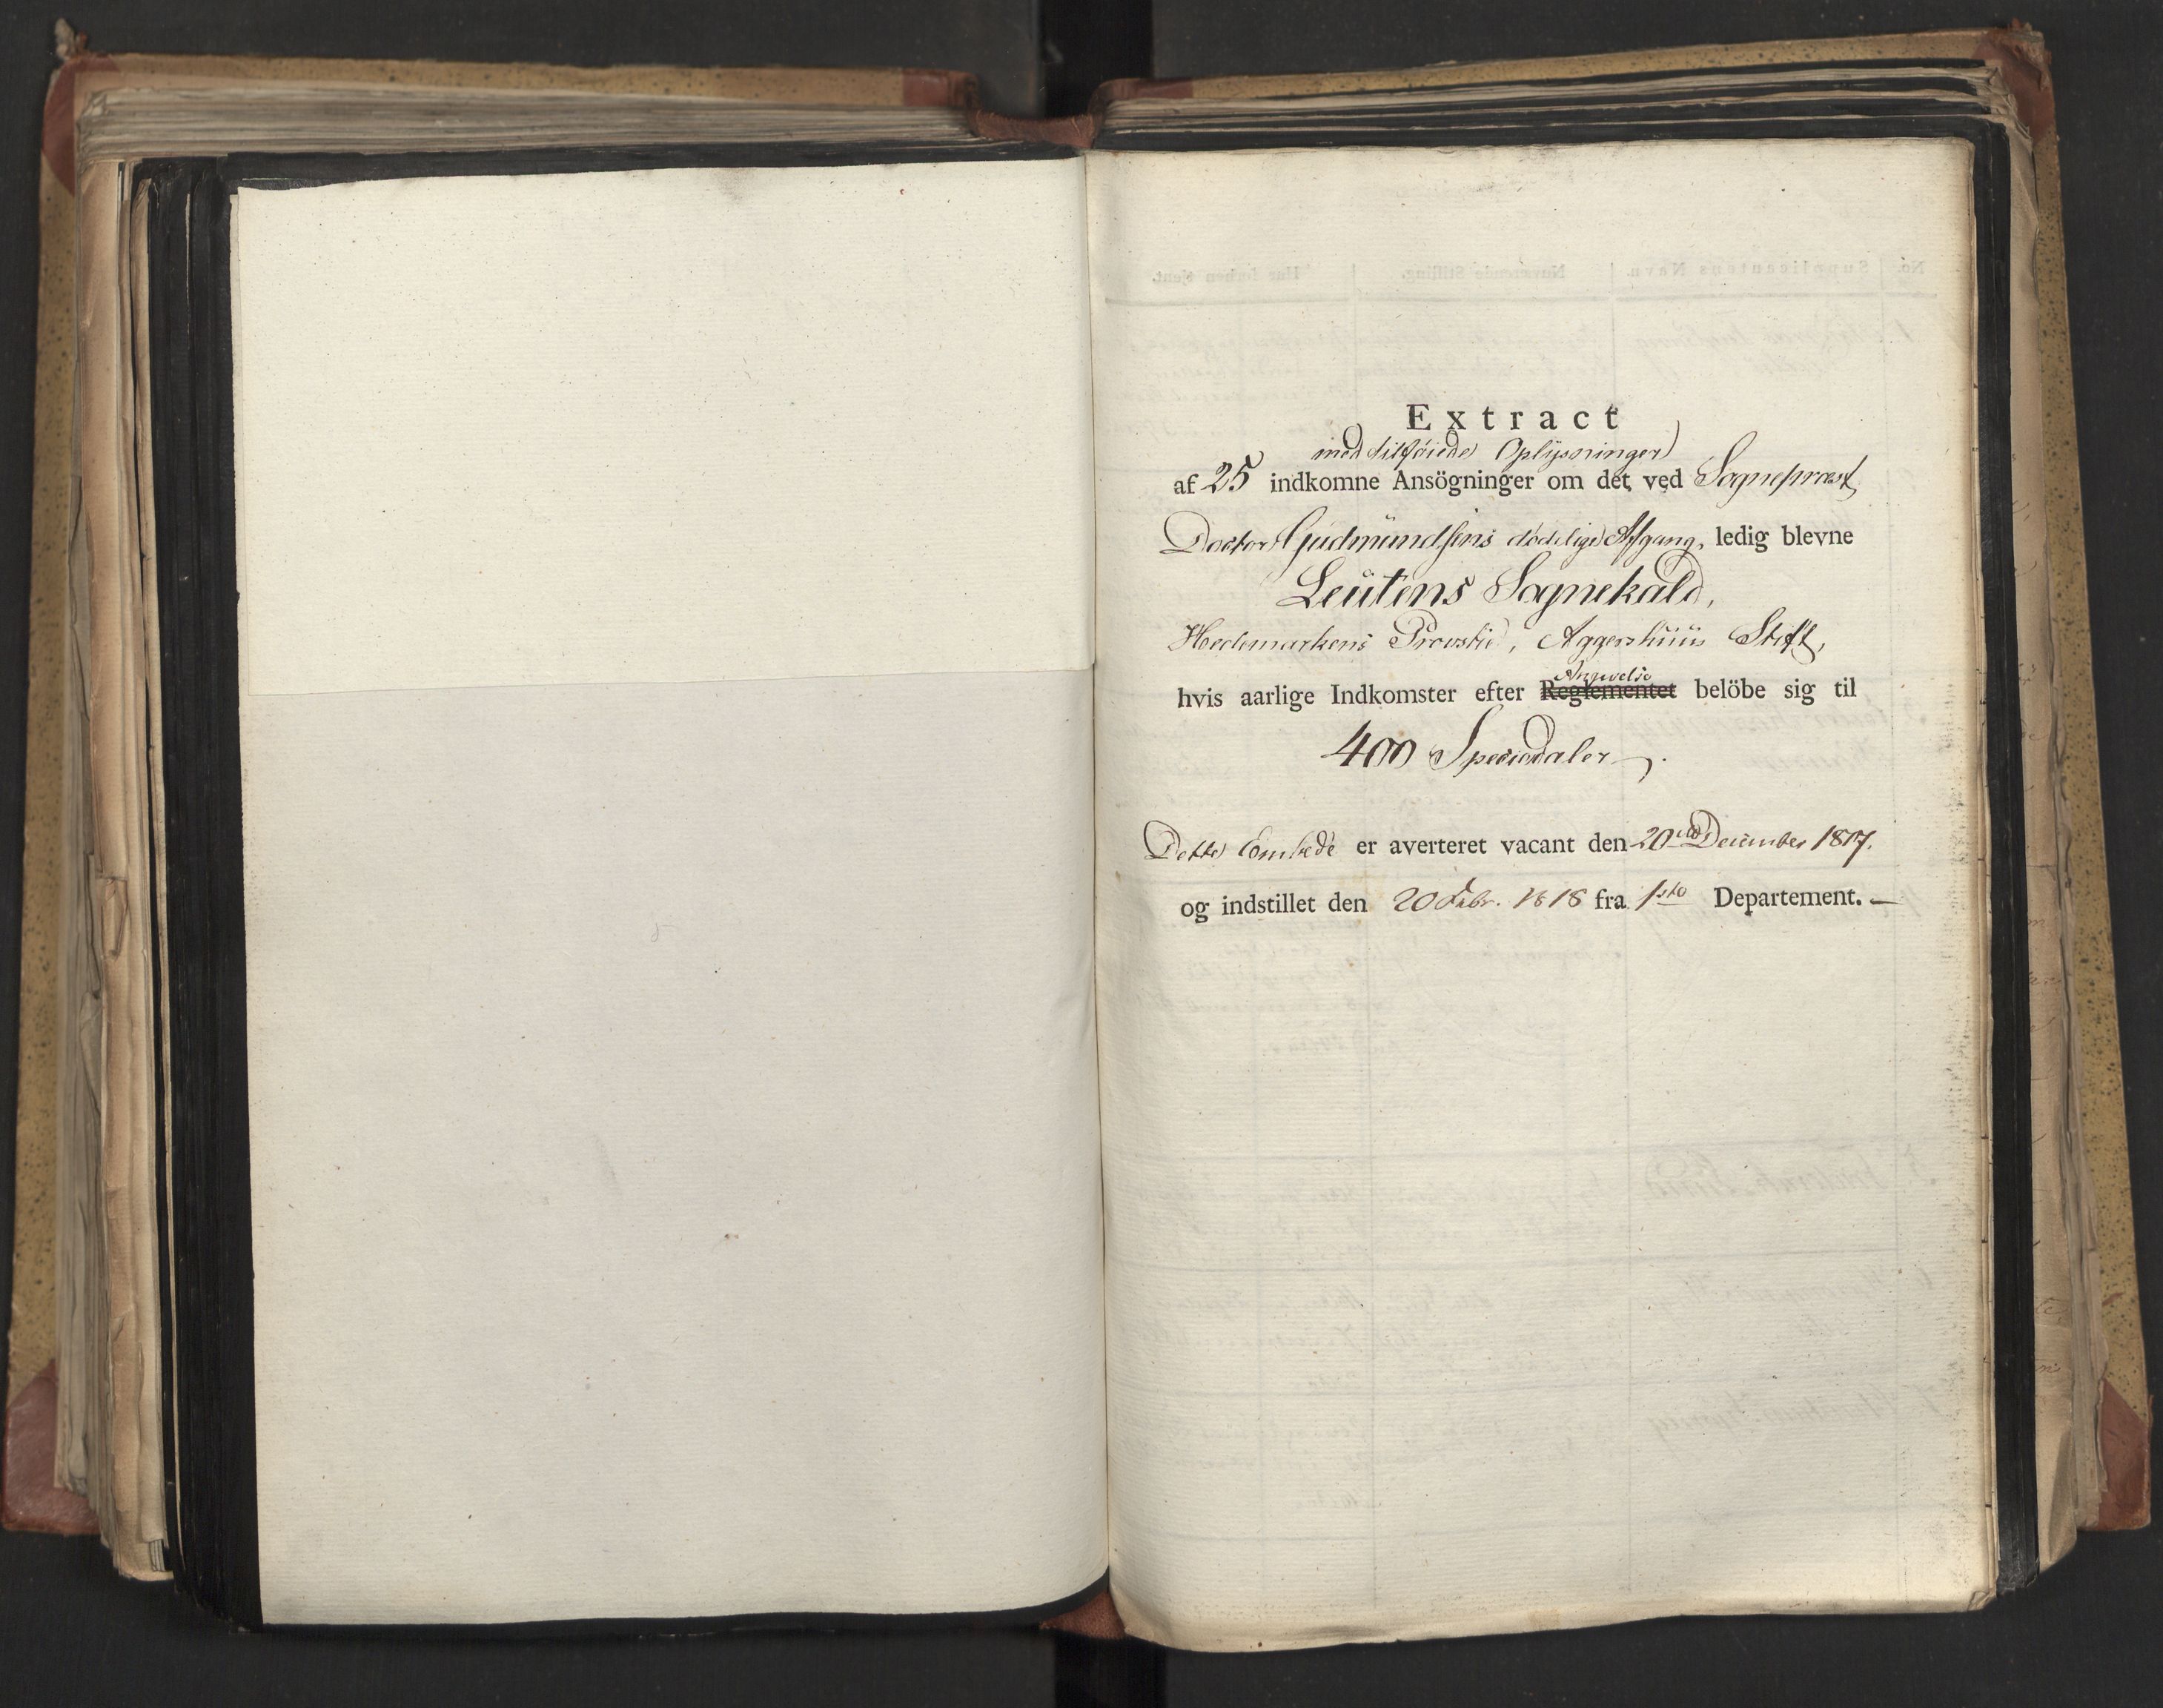 Extract
med tilföiede Oplysninger
af 25 indkomne Ansögninger om det ved Sognepræst
Doctor Gudmundsens dødelige Afgang, ledig blevne
Leutens Sognekald,
Hedemarkens Provstie, Aggershuus Stift,
Angivelse
hvis aarlige Indkomster efter Reglementet belöbe sig til
400 Speciedaler.
Dette Embede er averteret vacant den 20de December 1817.
og indstillet den 20 Febr. 1818 fra 1ste Departement. —